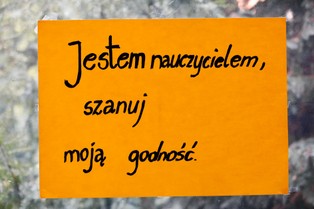 Jestem nauczycielem,
szanuj
moją godność.